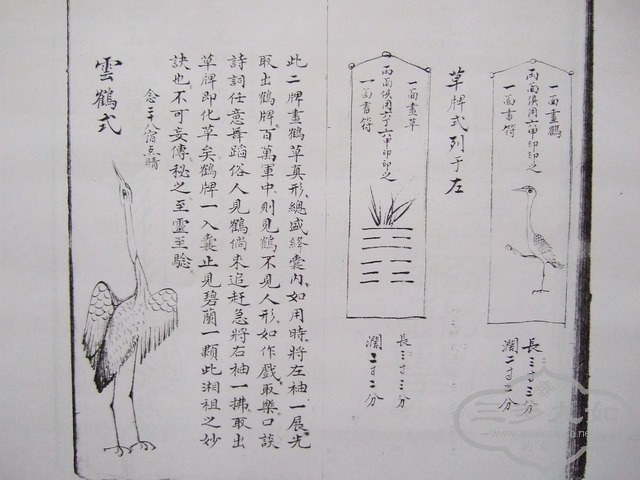 一面畫鶴
兩面俱用六甲印印之
一面書符
長三寸三分
濶二寸二分
草牌式列于左
一面畫草
兩面俱用六丁六甲印印之
一面書符
長三寸三分
濶二寸二分
此二牌畫鶴草真形總盛絳囊內如用時將左袖一展先
取出鶴牌百萬軍中則見鶴不見人形如作戲取樂口談
詩詞任意舞蹈俗人見鶴倘来追赶急將右袖一拂取出
草牌即化草矣鶴牌一入囊止見碧蘭一顆此湘祖之妙
訣也不可妄傳秘之至靈至驗
念二十八宿点睛
雲鶴式